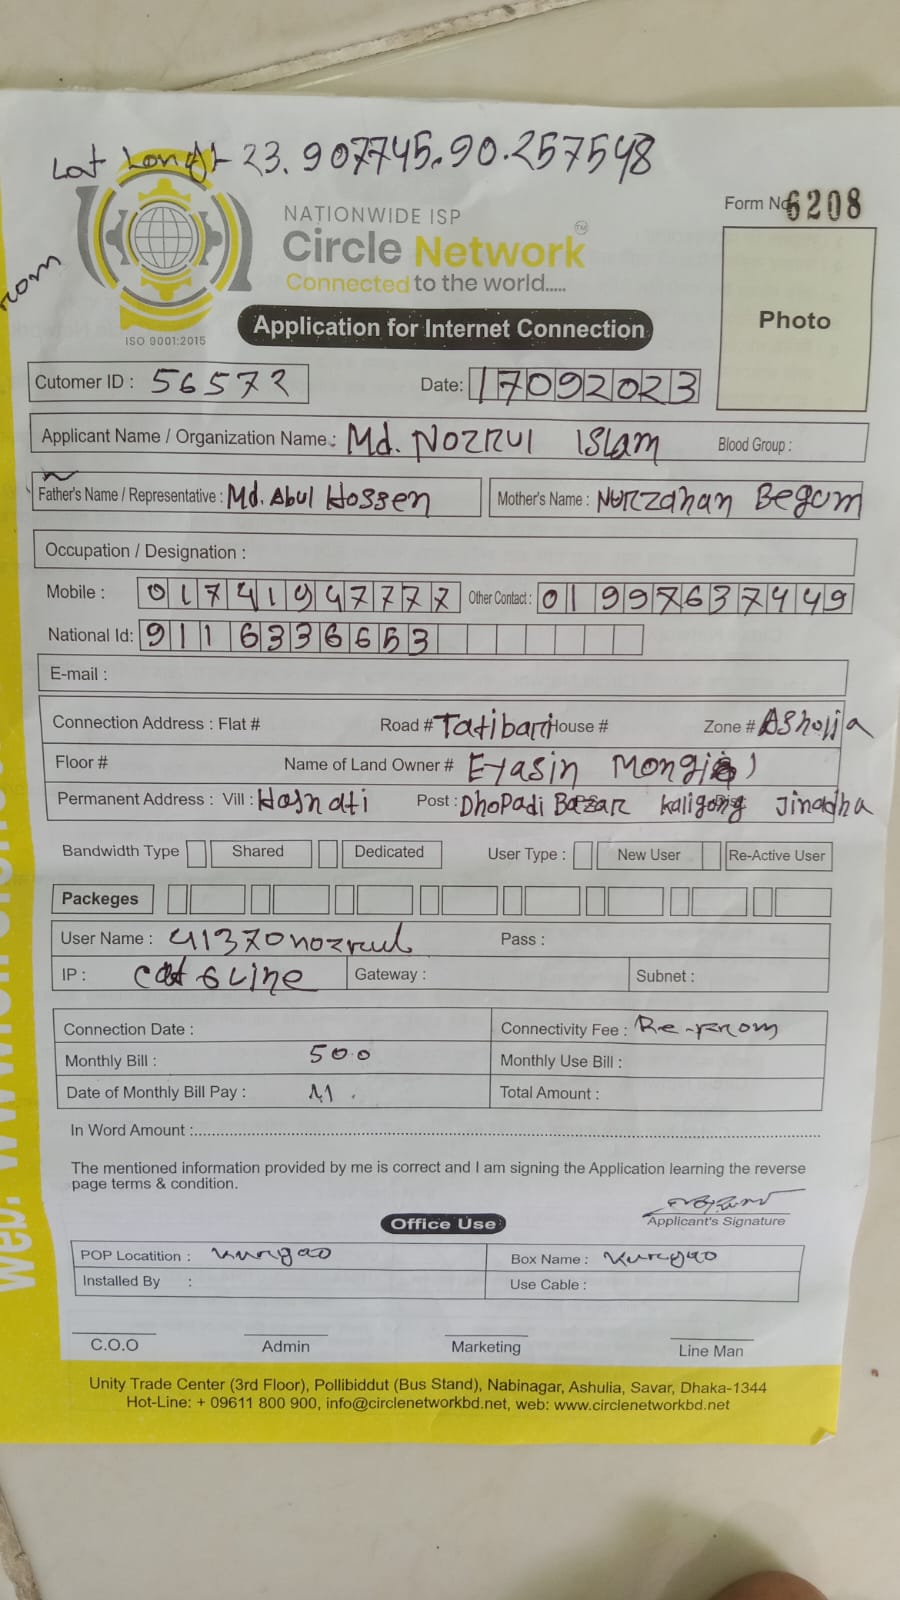 Lat Long 23.907745.90.257548
NATIONWIDE ISP
Form No 6208
Circle Network TM
Connected to the world.....
Photo
ISO 9001:2015
Application for Internet Connection
Cutomer ID : 56572
Date: 17092023
Applicant Name / Organization Name : Md. Nozrul Islam Blood Group :
Father's Name / Representative : Md. Abul Hossen Mother's Name : Nurzahan Begum
Occupation / Designation :
Mobile : 01741947777 Other Contact : 01997637449
National Id: 9116336653
E-mail :
Connection Address : Flat # Road # Tatibari House # Zone # Asholia
Floor # Name of Land Owner # Eyasin
Permanent Address : Vill : Hasnati Post : Dhopadi Bazar Kaligong Jinadha
Bandwidth Type Shared Dedicated User Type : New User Re-Active User
Packeges
User Name : 41370nozrul Pass :
IP : cat 6 Line Gateway : Subnet :
Connection Date : Connectivity Fee : Re-from
Monthly Bill : 500 Monthly Use Bill :
Date of Monthly Bill Pay : Total Amount :
In Word Amount :
The mentioned information provided by me is correct and I am signing the Application learning the reverse
page terms & condition.
Applicant's Signature
Office Use
POP Locatition : Kurgao Box Name : Kurgao
Installed By : Use Cable :
C.O.O Admin Marketing Line Man
Unity Trade Center (3rd Floor), Pollibiddut (Bus Stand), Nabinagar, Ashulia, Savar, Dhaka-1344
Hot-Line: + 09611 800 900, info@circlenetworkbd.net, web: www.circlenetworkbd.net